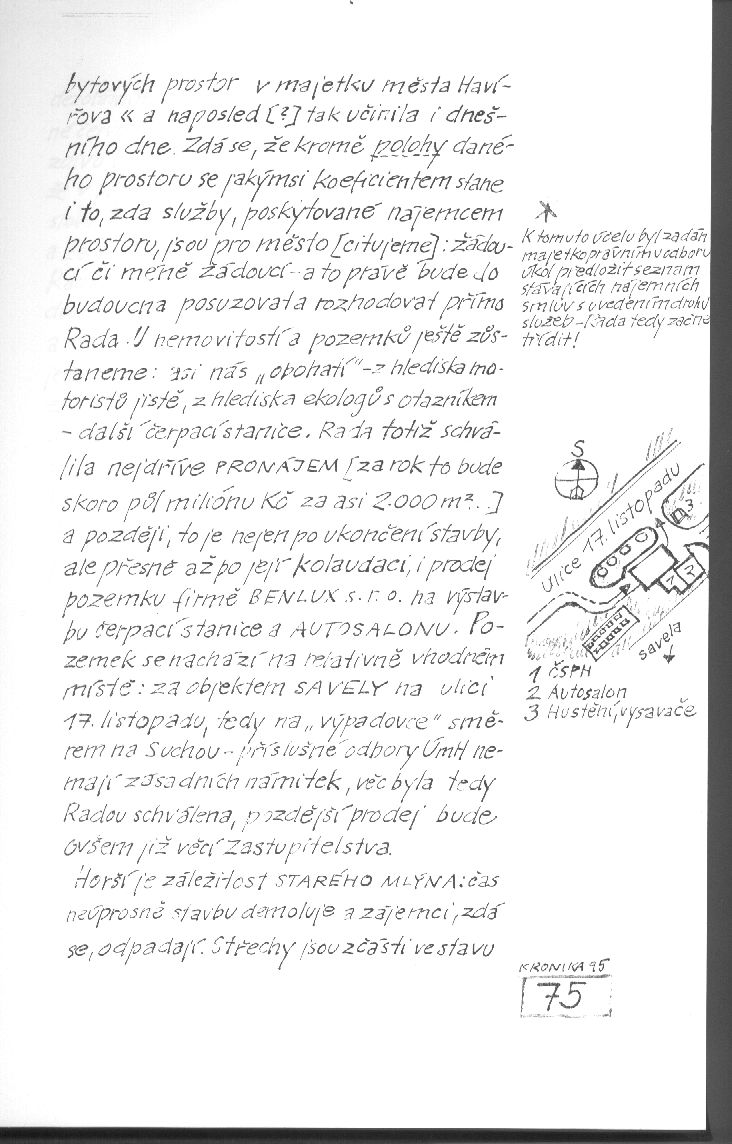 bytových prostor v majetku města Haví-
řova « a naposled [?] tak učinila i dneš-
ního dne. Zdá se, že kromě polohy dané-
ho prostoru se jakýmsi koeficientem stane
i to, zda služby, poskytované nájemcem
prostoru, jsou pro město [citujeme]: žádou-
cí či méně žádoucí - a to právě bude do
budoucna posuzovat a rozhodovat přímo
Rada. U nemovitostí a pozemků ještě zůs-
taneme: asi nás „obohatí“ - z hlediska mo-
toristů jistě, z hlediska ekologů s otazníkem
- další čerpací stanice. Rada totiž schvá-
lila nejdříve PRONÁJEM [za rok to bude
skoro půl miliónu Kč za asi 2.000 m². ]
a později, to je nejen po ukončení stavby,
ale přesně až po její kolaudaci, i prodej
pozemku firmě BENLUX s. r. o. na výstav-
bu čerpací stanice a AUTOSALONU. Po-
zemek se nachází na relativně vhodném
místě: za objektem SAVELY na ulici
17. listopadu, tedy na „výpadovce“ smě-
rem na Suchou - příslušné odbory ÚmH ne-
mají zásadních námitek, věc byla tedy
Radou schválena, pozdější prodej bude
ovšem již věcí Zastupitelstva.
Horší je záležitost STARÉHO MLÝNA: čas
neúprosně stavbu demoluje a zájemci, zdá
se, odpadají. Střechy jsou zčásti ve stavu
K tomuto účelu byl zadán
majetkoprávnímu odboru
úkol předložit seznam
stávajících nájemních
smluv s uvedením druhu
služeb - Rada tedy začne
třídit!
S
ulice 17. listopadu
3
1
2
savela
1 ČSPH
2 Autosalon
3 Huštění, vysavače
KRONIKA 95
75